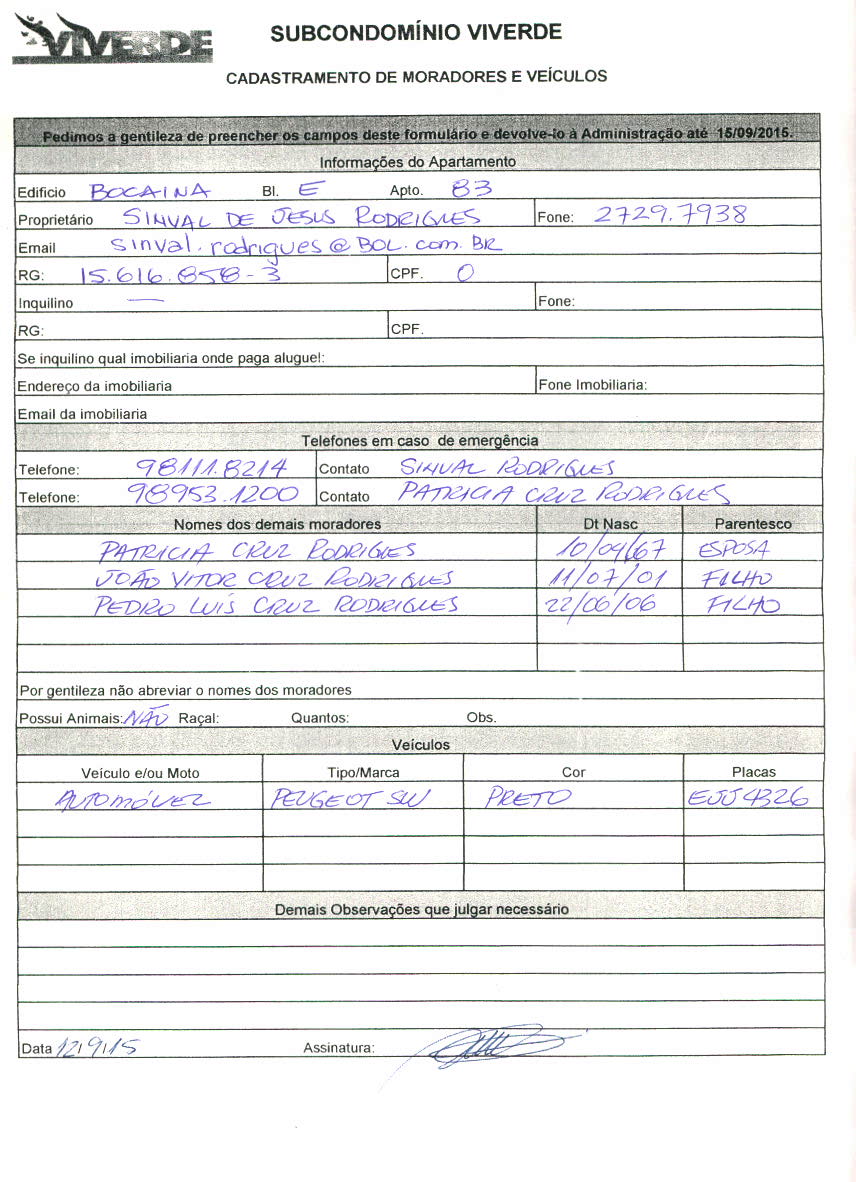 VIVERDE
SUBCONDOMÍNIO VIVERDE
CADASTRAMENTO DE MORADORES E VEÍCULOS
Pedimos a gentileza de preencher os campos deste formulário e devolve-lo à Administração até 15/09/2015.
Informações do Apartamento
Edificio BOCAINA Bl. E Apto. 83
Proprietário SINVAL DE JESUS RODRIGUES Fone: 2729.7938
Email sinval.rodrigues@BOL.com.BR
RG: 15.616.858-3 CPF. 0
Inquilino — Fone:
RG: CPF.
Se inquilino qual imobiliaria onde paga aluguel:
Endereço da imobiliaria Fone Imobiliaria:
Email da imobiliaria
Telefones em caso de emergência
Telefone: 98111.8214 Contato SINVAL RODRIGUES
Telefone: 98953.1200 Contato PATRICIA CRUZ RODRIGUES
Nomes dos demais moradores Dt Nasc Parentesco
PATRICIA CRUZ RODRIGES 10/04/67 ESPOSA
JOÃO VITOR CRUZ RODRIGUES 11/07/01 FILHO
PEDRO LUÍS CRUZ RODRIGUES 22/06/06 FILHO
Por gentileza não abreviar o nomes dos moradores
Possui Animais: NÃO Raçal: Quantos: Obs.
Veículos
Veículo e/ou Moto Tipo/Marca Cor Placas
AUTOMÓVEL PEUGEOT SW PRETO EJJ 4326
Demais Observações que julgar necessário
Data 12/9/15 Assinatura: